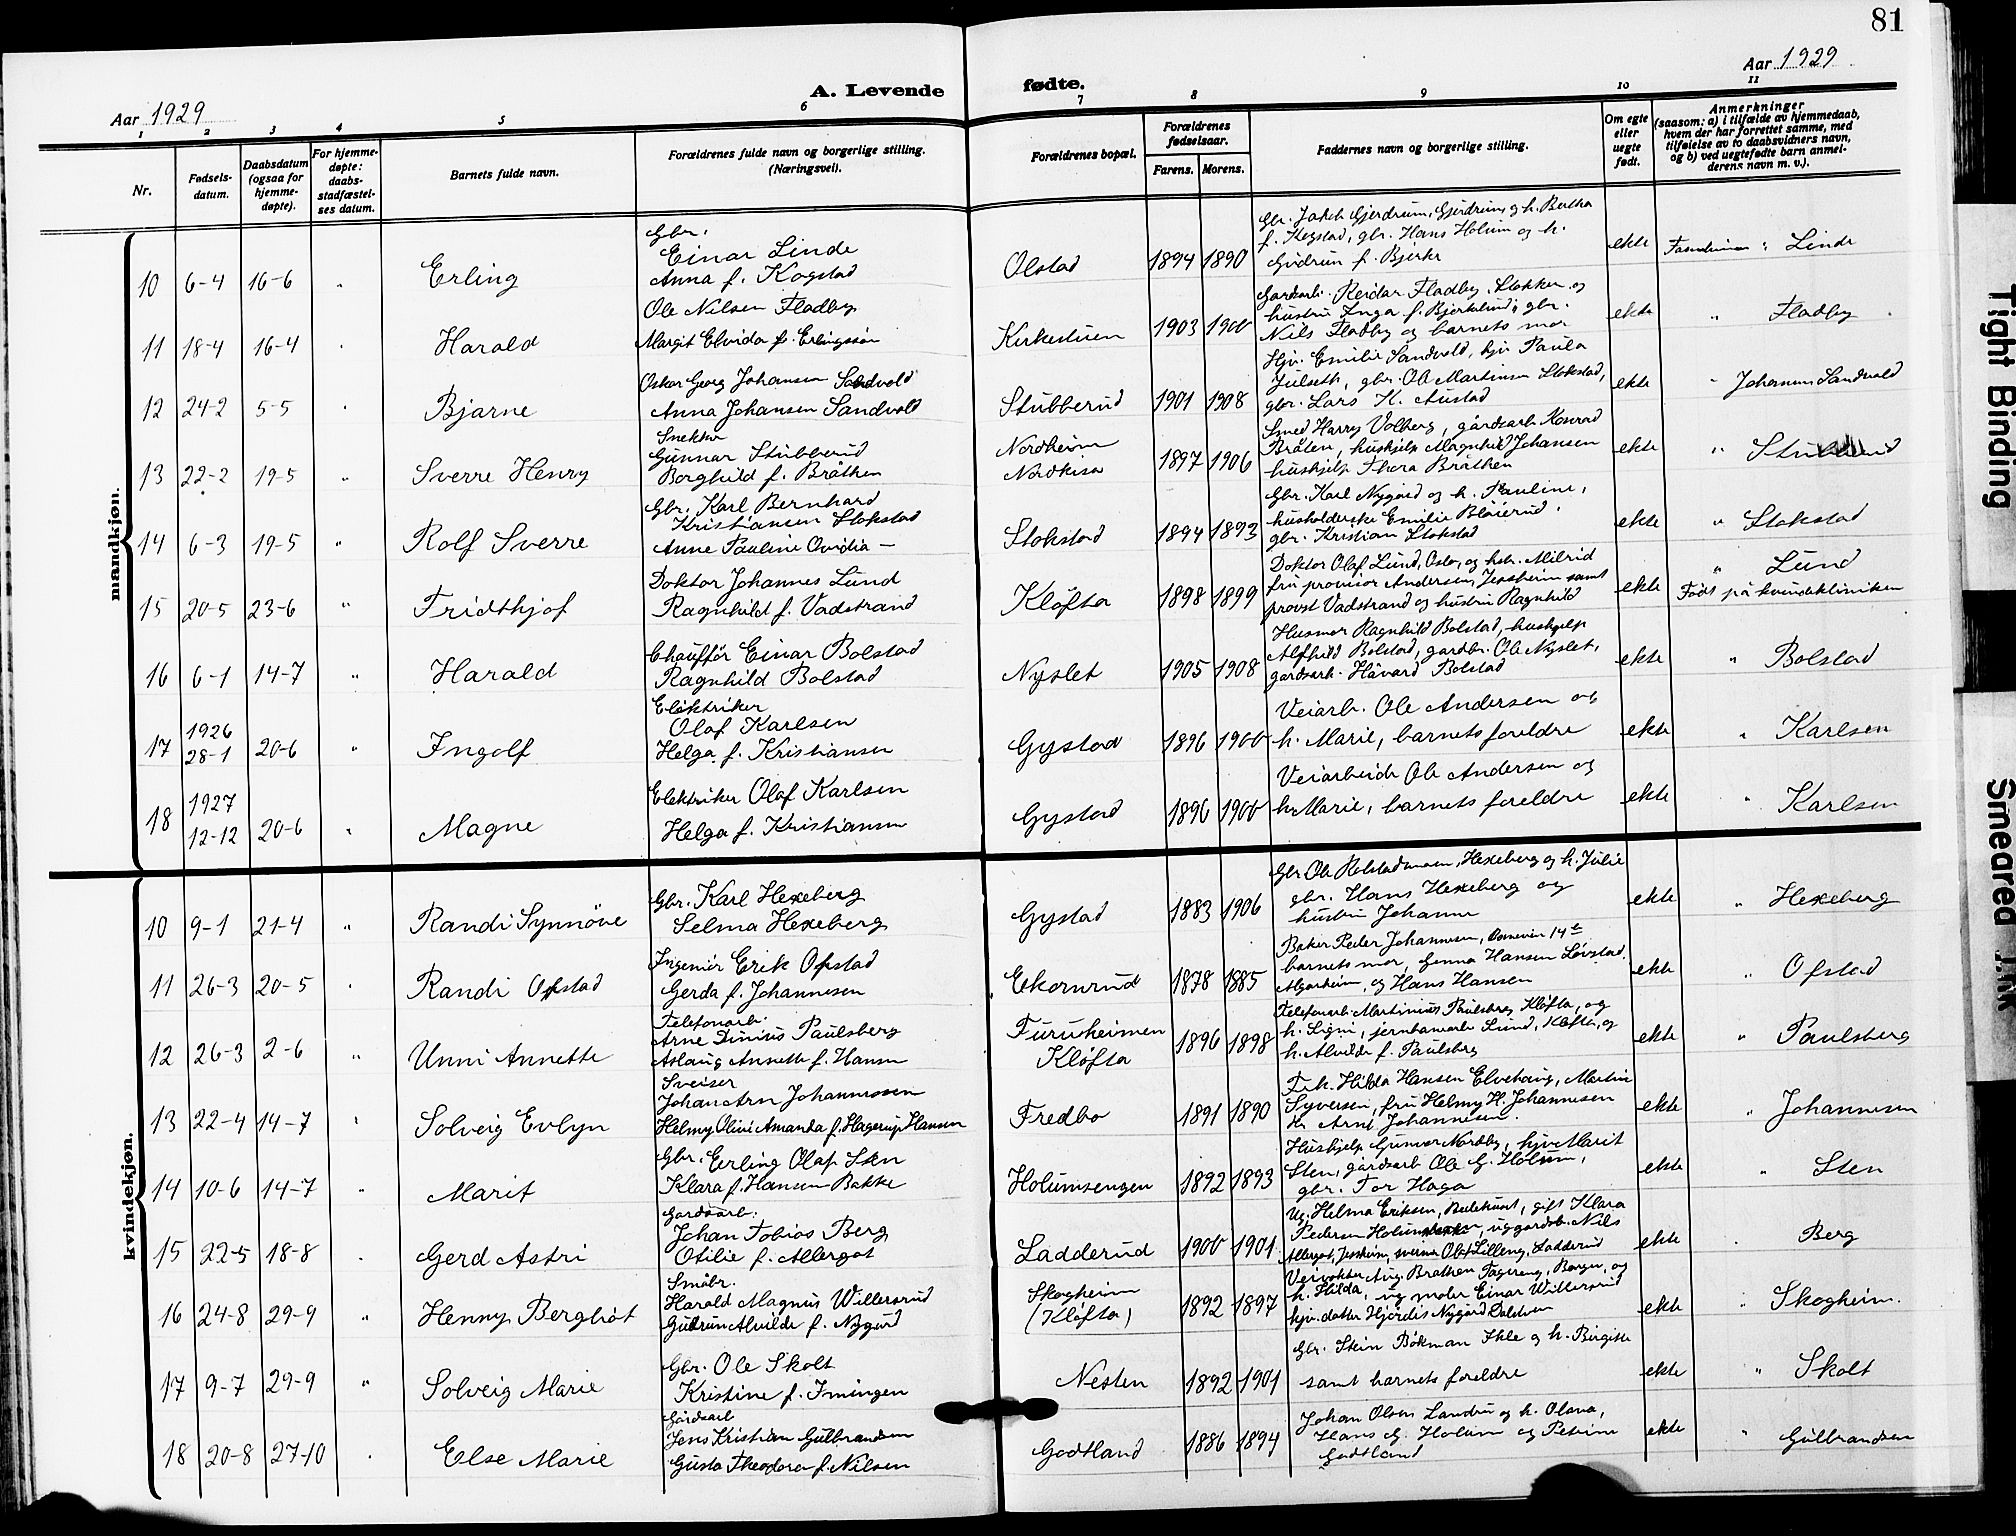 81
Aar 1929
A. Levende fødte.
Aar 1929
1 2 3 4 5 6 7 8 9 10 11
Nr.
Fødsels-
datum.
Daabsdatum
(ogsaa for
hjemme-
døpte).
For hjemme-
døpte:
daabs-
stadfæstel-
ses datum.
Barnets fulde navn.
Forældrenes fulde navn og borgerlige stilling.
(Næringsvei).
Forældrenes bopæl.
Forældrenes
fødselsaar.
Farens. Morens.
Faddernes navn og borgerlige stilling.
Om egte
eller
uegte
født.
Anmerkninger
(saasom: a) i tilfælde av hjemmedaab,
hvem der har forrettet samme, med
tilføielse av to daabsvidners navn,
og b) ved uegtefødte barn anmel-
derens navn m. v.).
mandkjøn.
10 6-4 16-6 " Erling
Gbr.
Einar Linde
Anna f. Kogstad
Olstad 1894 1890
Gbr. Jakob Gjerdrum, Gjerdrum, og h. Bertha
f. Kogstad, gbr. Hans Holum og h.
Gudrun f. Bjerke
ekte Linde
11 18-4 16-4 " Harald
Ole Nilsen Fladby
Margit Elvida f. Erlingsson
Kirkestuen 1903 1900
Gardsarb. Reidar Fladby, Slokker og
hustru Inga f. Bjørkelund, gbr.
Nils Fladby og barnets mor
ekte " Fladby
12 24-2 5-5 " Bjarne
Oskar Georg Johansen Sandvold
Anna Johansen Sandvold
Stubberud 1901 1908
Hjv. Emilie Sandvold, hjv. Paula
Julseth, gbr. Ole Martinsen Slokstad,
gbr. Lars K. Austad
ekte " Johansen Sandvold
13 22-2 19-5 " Sverre Henry
Snekker
Gunnar Stubberud
Borghild f. Bråthen
Nordheim
Nordkisa
1897 1906
Smed Harry Volberg, gårdsarb. Konrad
Bråten, huskjelp Magnhild Johansen
huskjelp Thora Bråthen
ekte " Stubberud
14 6-3 19-5 " Rolf Sverre
Gbr. Karl Bernhard
Kristiansen Slokstad
Anne Pauline Ovidia —
Slokstad 1894 1893
Gbr. Karl Nygård og h. Pauline,
husholderske Emilie Blåierud,
gbr. Kristian Slokstad
ekte " Slokstad
15 20-5 23-6 " Fridthjof
Doktor Johannes Lund
Ragnhild f. Vadstrand
Kløfta 1898 1899
Doktor Olaf Lund, Oslo, og hstr. Milrid
fru provisor Andersen, Jessheim samt
provst Vadstrand og hustru Ragnhild
ekte " Lund
Født på kvindekliniken
16 6-1 14-7 " Harald
Chauffør Einar Bolstad
Ragnhild Bolstad
Nyslet 1905 1908
Husmor Ragnhild Bolstad, huskjelp
Alfhild Bolstad, gardbr. Ole Nyslet,
gardsarb. Håvard Bolstad
ekte " Bolstad
17 1926
28-1 20-6 " Ingolf
Elektriker
Olaf Karlsen
Helga f. Kristiansen
Gystad 1896 1900
Veiarb. Ole Andersen og
h. Marie, barnets foreldre
ekte " Karlsen
18 1927
12-12 20-6 " Magne
Elektriker Olaf Karlsen
Helga f. Kristiansen
Gystad 1896 1900
Veiarbeider Ole Andersen og
h. Marie, barnets foreldre
ekte " Karlsen
kvindekjøn.
10 9-1 21-4 " Randi Synnöve
Gbr. Karl Hexeberg
Selma Hexeberg
Gystad 1883 1906
Gbr. Ole Rolstadmoen, Hexeberg og h. Julie
gbr. Hans Hexeberg og
hustru Johanne
ekte " Hexeberg
11 26-3 20-5 " Randi Ofstad
Ingeniør Erik Ofstad
Gerda f. Johannesen
Ekornrud 1878 1885
Baker Peder Johannesen,
barnets mor, Genna Hansen Løvstad,
Algarheim, og Hans Hansen
ekte " Ofstad
12 26-3 2-6 " Unni Annette
Telefonarb.
Arne Dinius Paulsberg
Aslaug Annette f. Hansen
Furuheimen
Kløfta
1896 1898
Telefonarb. Martinius Paulsberg, Kløfta, og
h. Signi, jernbanearb. Lund, Kløfta, og
h. Alvilde f. Paulsberg
ekte " Paulsberg
13 22-4 14-7 " Solveig Evlyn
Sveiser
Johan Arn Johannesen
Helmy Olive Amanda f. Hagerup Hansen
Fredbo 1891 1890
Frk. Hilda Hansen Elvehaug, Martin
Syversen, fru Helmy H. Johannesen
hr. Arnt Johannesen.
ekte " Johannesen
14 10-6 14-7 " Marit
Gbr. Erling Olaf Sten
Klara f. Hansen-Bakke
Holumsengen 1892 1893
Huskjelp Gunvor Nordby, hjv. Marit
Sten, gardsarb. Ole G. Holum,
gbr. Tor Haga
ekte " Sten
15 22-5 18-8 " Gerd Astri
Gardsarb.
Johan Tobias Berg
Otilie f. Allergot
Ladderud 1900 1901
Ug. Helma Eriksen, gift Klara
Pedersen ug. gardsb. Nils
Allergot, Jessheim, Olaf Lilleng, Ladderud
ekte " Berg
16 24-8 29-9 " Henny Bergliot
Småbr.
Harald Magnus Willersrud
Gudrun Alvilde f. Nygård
Skogheim
(Kløfta)
1892 1897
Veivokter Aug. Brathen Fagereng, Borgen, og
h. Hilda, ug. maler Einar Willersrud
hjv. datter Hjördis Nygård Dalstven
ekte " Skogheim.
17 9-7 29-9 " Solveig Marie
Gbr. Ole Skolt
Kristine f. Imingen
Nesten 1892 1901
Gbr. Stein Bökman Ihle og h. Birgitte
samt barnets foreldre
ekte " Skolt
18 20-8 27-10 " Else Marie
Gårdsarb.
Jens Kristian Gulbrandsen
Gusta Theodora f. Nilsen
Godtland 1886 1894
Johan Olsen Landrud og h. Olava,
Hans G. Holum og Petrine
Godtland
ekte " Gulbrandsen
Tight Binding
Smeared Ink